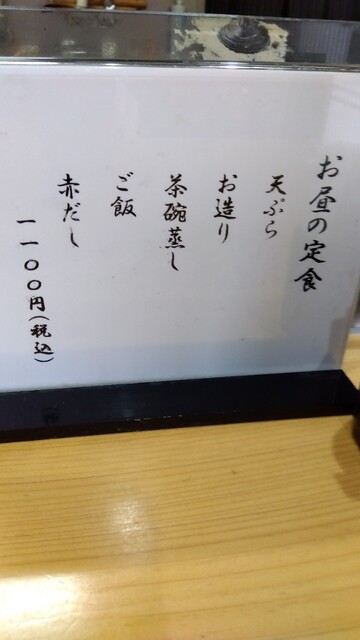 お昼の定食
天ぷら
お造り
茶碗蒸し
ご飯
赤だし
一一〇〇円(税込)